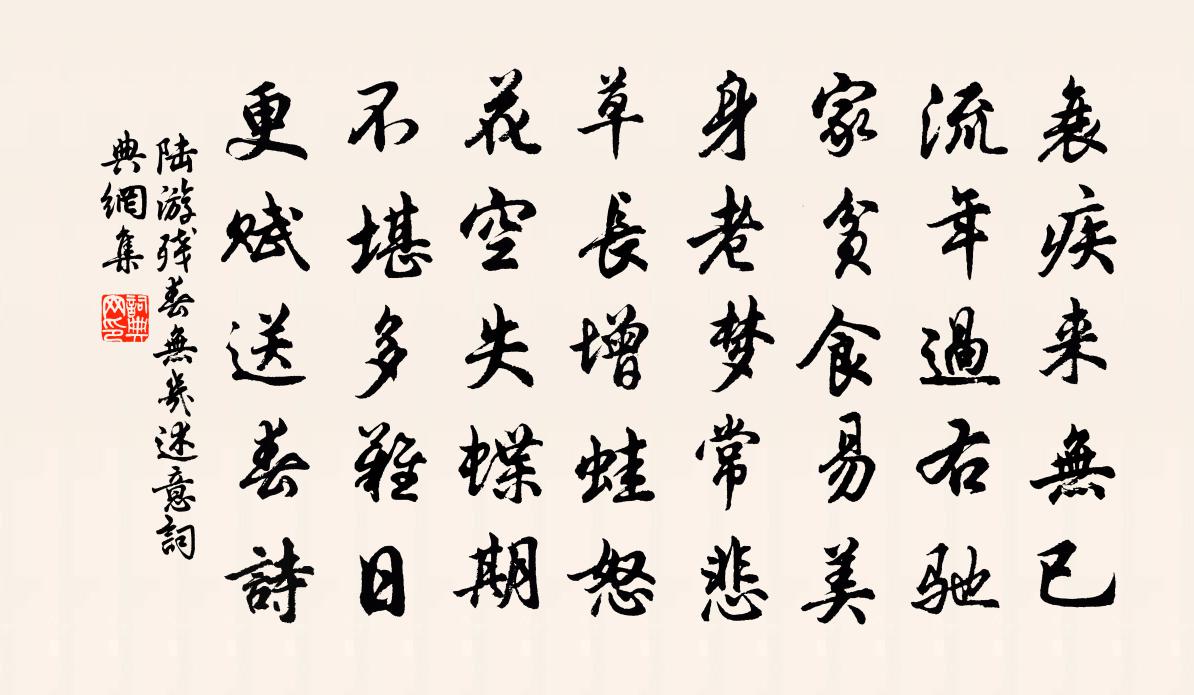 衰疾来無已
流年過右馳
家貧食易美
身老梦常悲
草長增蛙怒
花空失蝶期
不堪多難日
更赋送春詩
陆游残春無幾述意詞
典網集
詞典网印